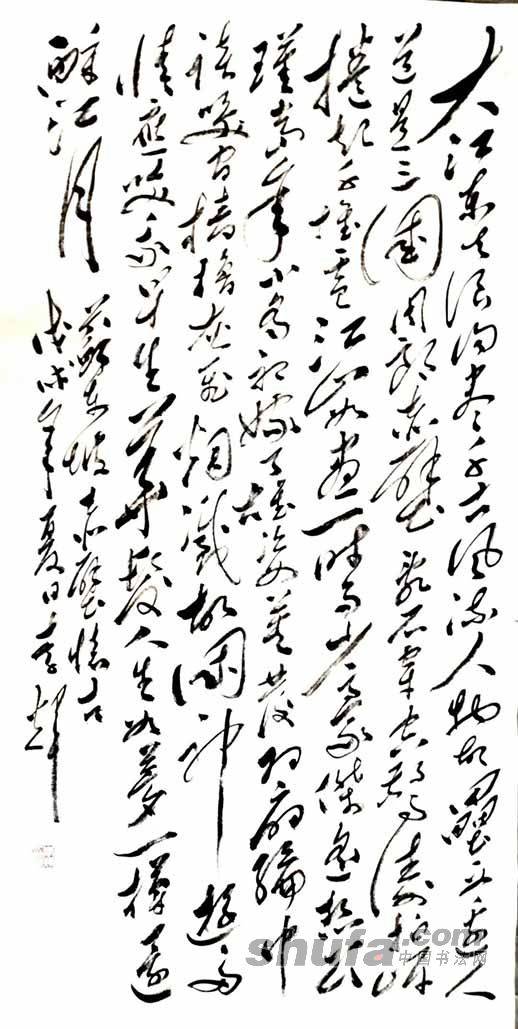 大江東去浪淘盡千古風流人物故壘西邊人
道是三國周郎赤壁亂石穿空驚濤拍岸
捲起千堆雪江山如畫一時多少豪傑遙想公
瑾當年小喬初嫁了雄姿英發羽扇綸巾
談笑間檣櫓灰飛烟滅故國神遊多
情應笑我早生華髮人生如夢一樽還
酹江月
蘇東坡赤壁懷古
戊戌年夏日
shufa.com
中国书法网